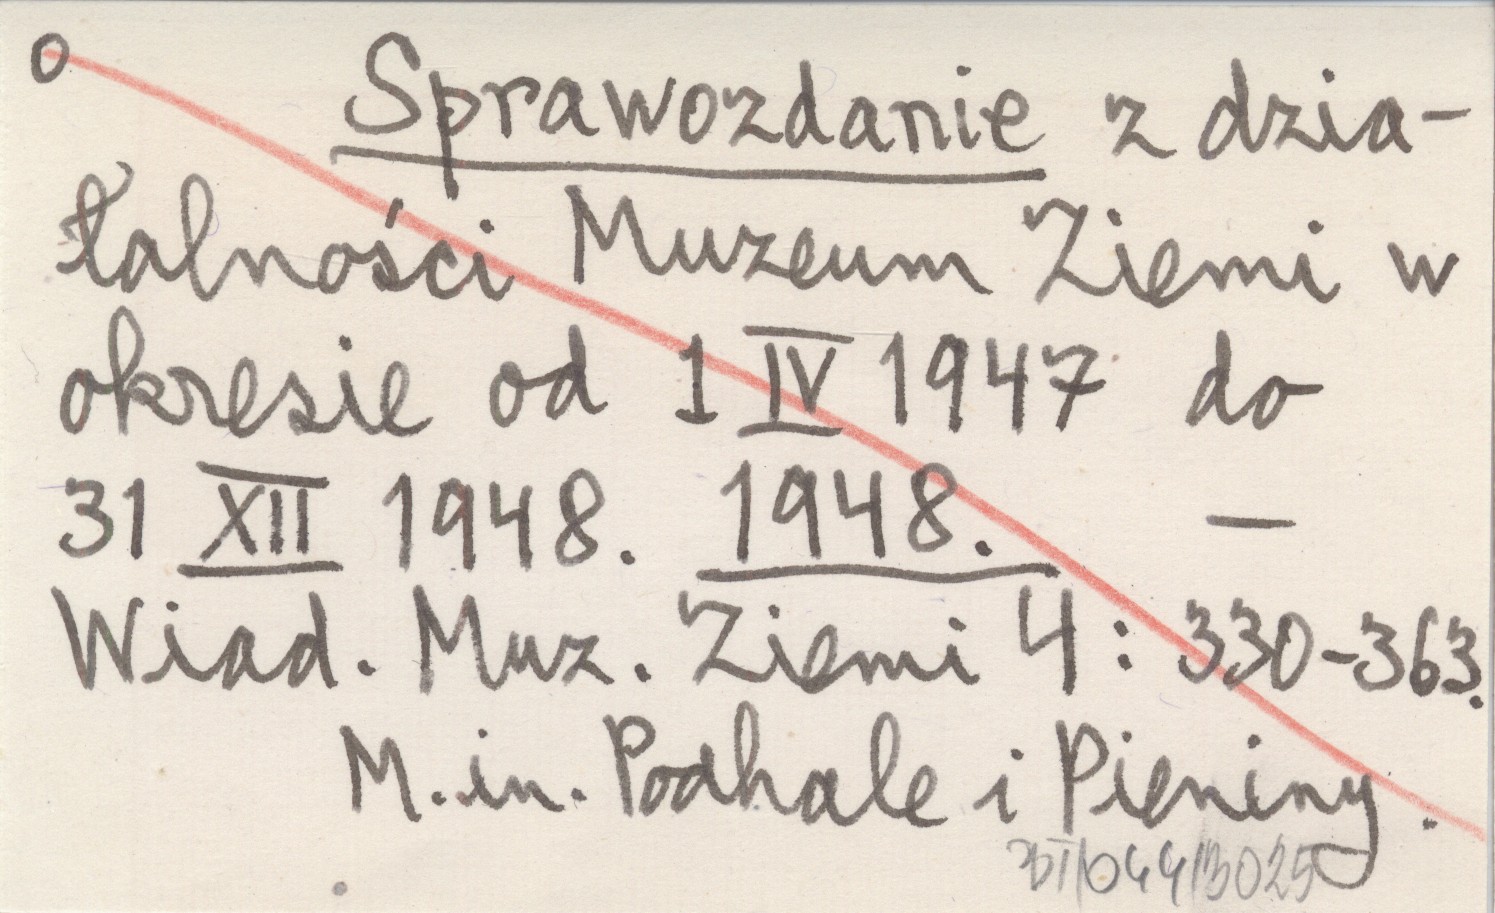 O
Sprawozdanie z dzia-
łalności Muzeum Ziemi w
okresie od 1 IV 1947 do
31 XII 1948. 1948. —
Wiad. Muz. Ziemi 4: 330-363.
M.in. Podhale i Pieniny.